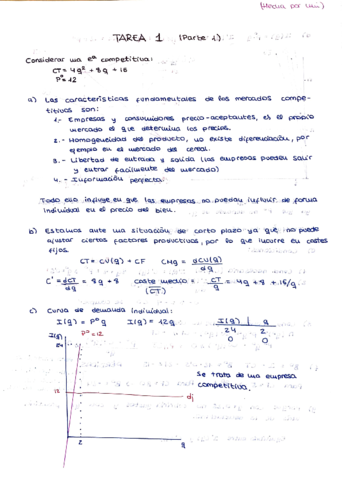 (Hecha por mi)
TAREA 1 (Parte 1)
Considerar una eª competitiva:
CT = 4q² + 8q + 16
P⁰ = 12
a) Las características fundamentales de los mercados compe-
titivos son:
1.- Empresas y consumidores precio-aceptantes, es el propio
mercado el que determina los precios.
2.- Homogeneidad del producto, no existe diferenciación, por
ejemplo en el mercado del cereal.
3.- Libertad de entrada y salida (las empresas pueden salir
y entrar facilmente del mercado)
4.- Información perfecta.
Todo eso influye en que las empresas no puedan influir de forma
individual en el precio del bien.
b) Estamos ante una situación de corto plazo ya que no puede
ajustar ciertos factores productivos, por lo que incurre en costes
fijos.
CT = CV(q) + CF CMg = dCV(q)/dq
C' = dCT/dq = 8q + 8 coste medio (CT) = CT/q = 4q + 8 + 16/q
c) Curva de demanda individual:
I(q) = P⁰q I(q) = 12q
I(q) | q
24 | 2
0 | 0
I(q)
P⁰=12
12
di
2
q
Se trata de una empresa
competitiva.